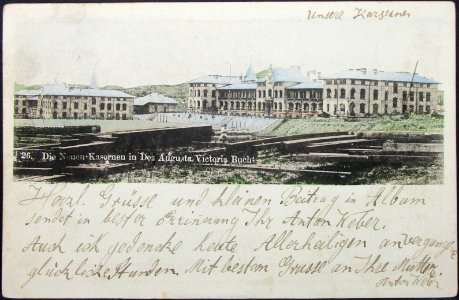 Unsere Kasernen
26. Die Neuen-Kasernen in Der Augusta Victoria Bucht
Herzl. Grüsse und kleinen Beitrag in Album
sendet in bester Erinnerung Ihr Anton Weber.
Auch ich gedenke heute Allerheiligen an vergangene
glückliche Stunden. Mit bestem Grusse an Ihre Mutter
Anton Weber